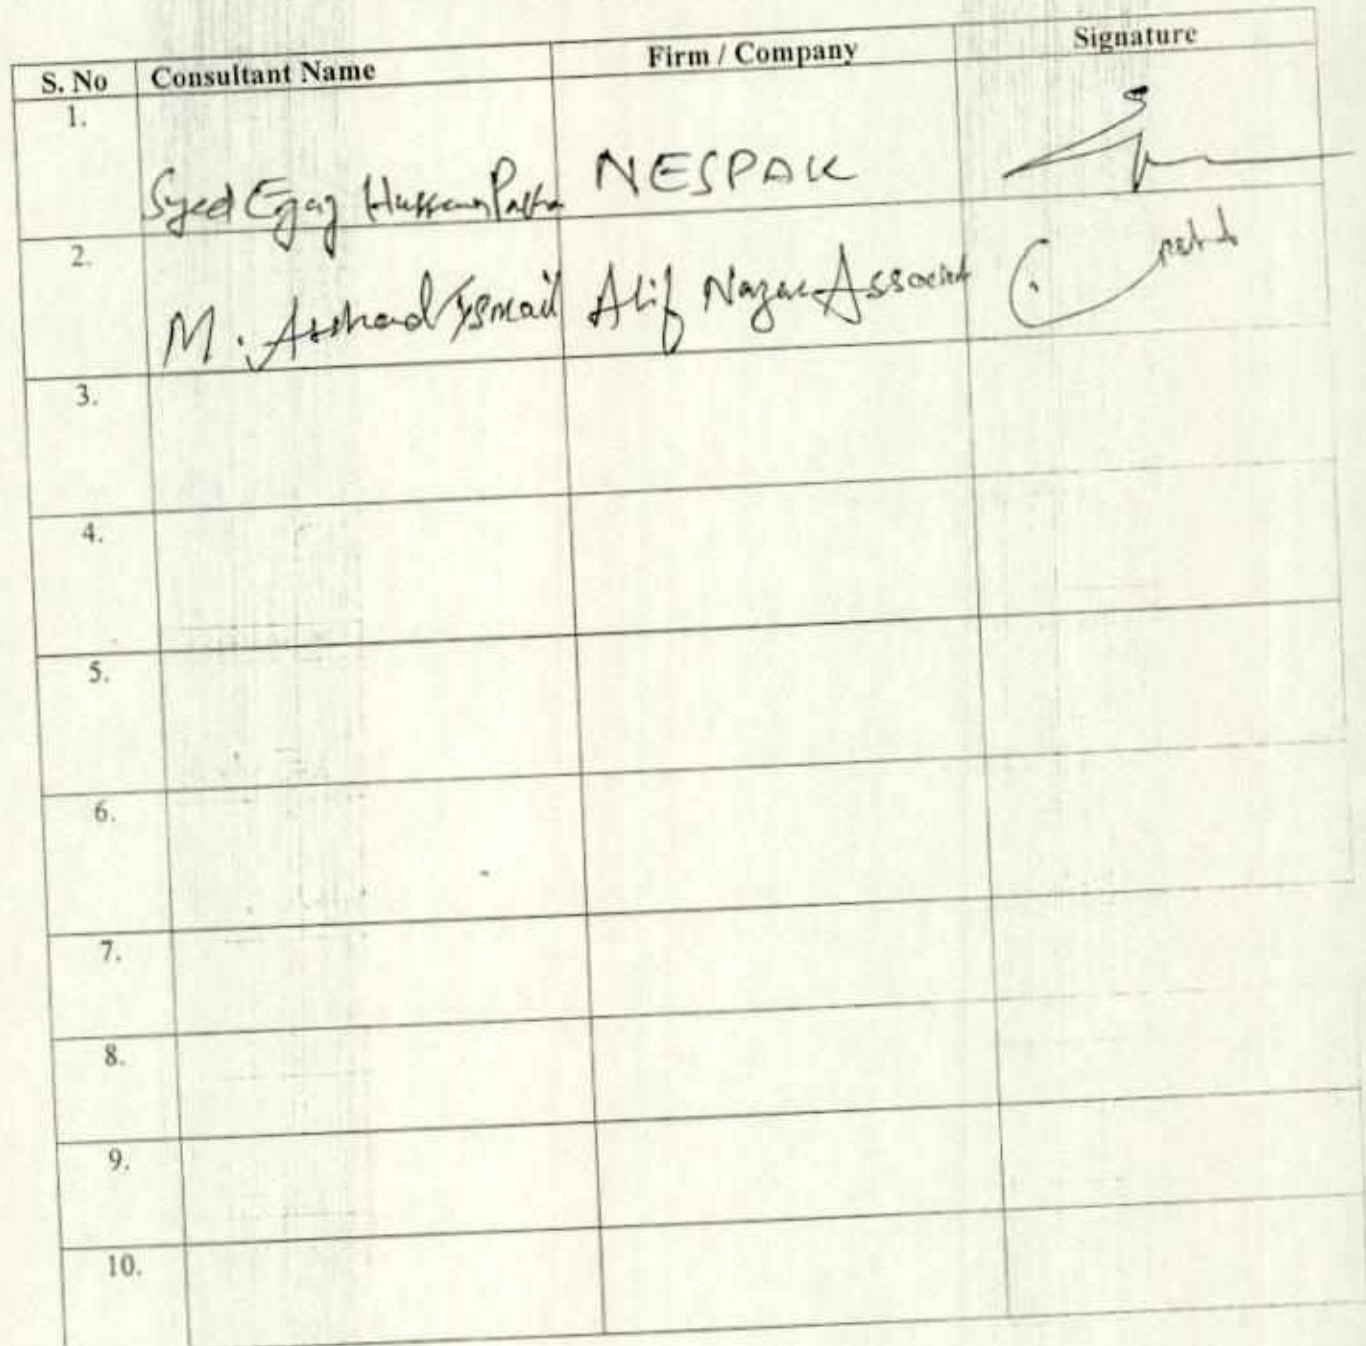 S. No Consultant Name Firm / Company Signature
1. Syed Ejaz Hussain NESPAK
2. M. Arshad Ismail Alif Nazar Associat
3.
4.
5.
6.
7.
8.
9.
10.